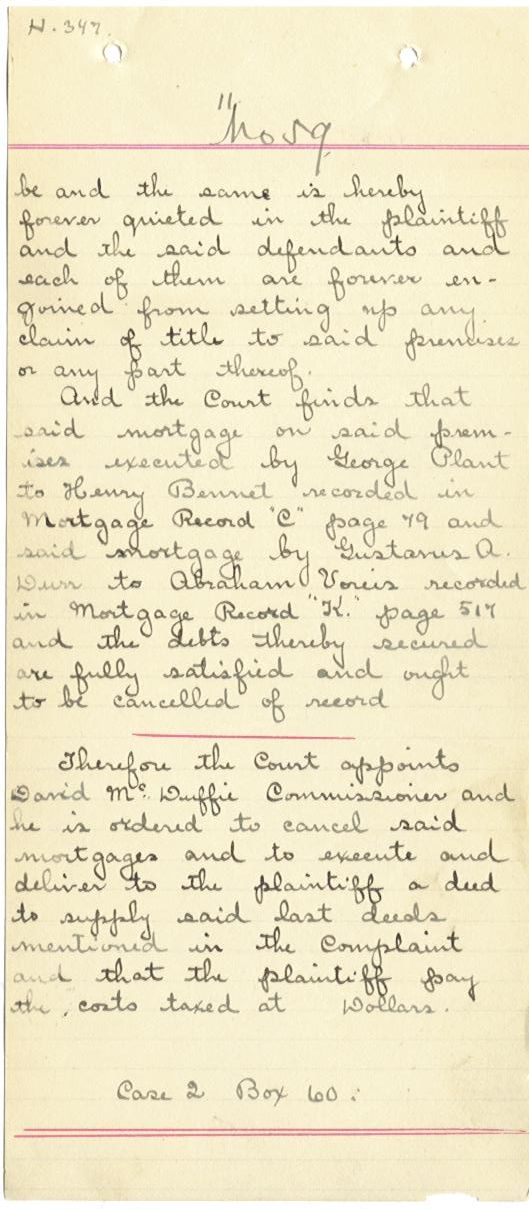 H. 347.
"No 59
be and the same is hereby
forever quieted in the plaintiff
and the said defendants and
each of them are forever en-
joined from setting up any
claim of title to said premises
or any part thereof.
And the Court finds that
said mortgage on said prem-
ises executed by George Plant
to Henry Bennet recorded in
Mortgage Record "C" page 79 and
said mortgage by Gustavus A.
Durr to Abraham Voreis recorded
in Mortgage Record "K." page 517
and the debts thereby secured
are fully satisfied and ought
to be cancelled of record
Therefore the Court appoints
David Mc. Duffie Commissioner and
he is ordered to cancel said
mortgages and to execute and
deliver to the plaintiff a deed
to supply said last deeds
mentioned in the Complaint
and that the plaintiff pay
the costs taxed at Dollars.
Case 2 Box 60.